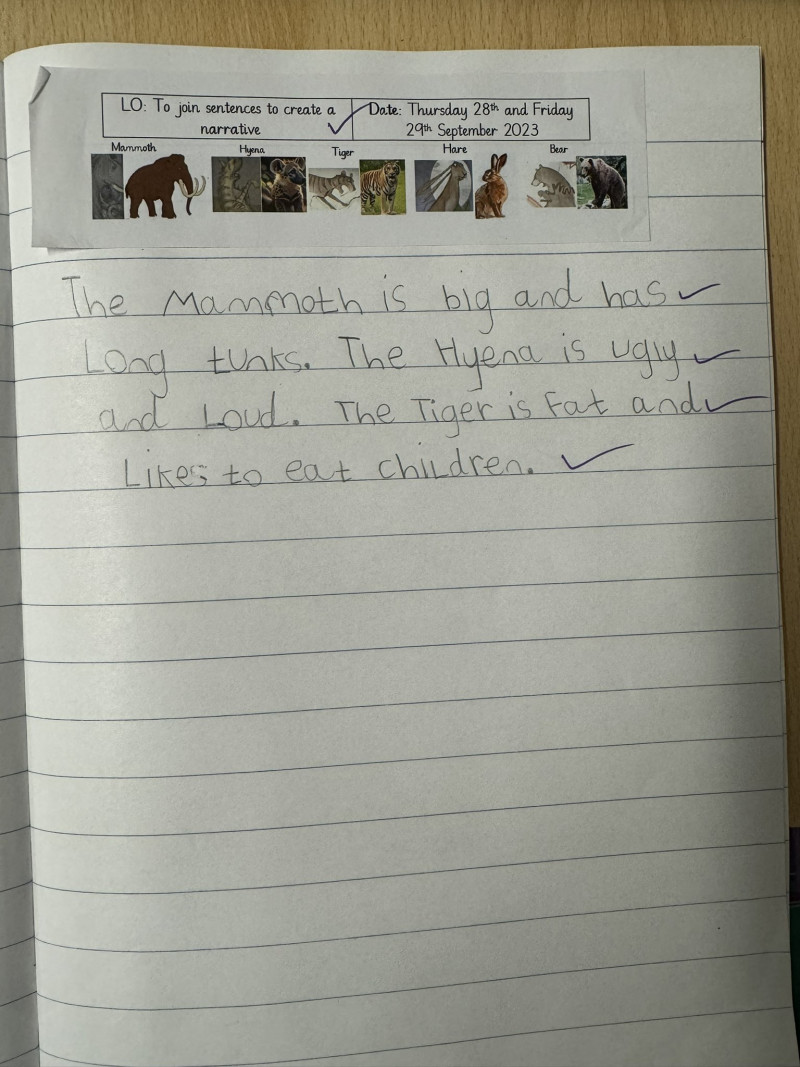 LO: To join sentences to create a narrative
Date: Thursday 28th and Friday 29th September 2023
Mammoth Hyena Tiger Hare Bear
The Mammoth is big and has
Long tunks. The Hyena is ugly
and Loud. The Tiger is Fat and
Likes to eat children.